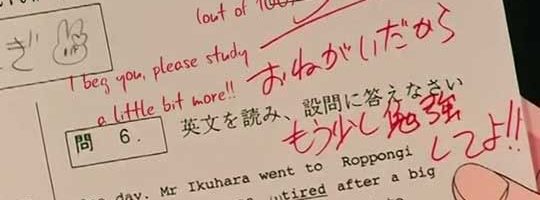 (out of 100)
ぎ
I beg you, please study
a little bit more!!
おねがいだから
もう少し勉強
してよ!!
問 6.
英文を読み、設問に答えなさい
day. Mr Ikuhara went to Roppongi
tired after a big